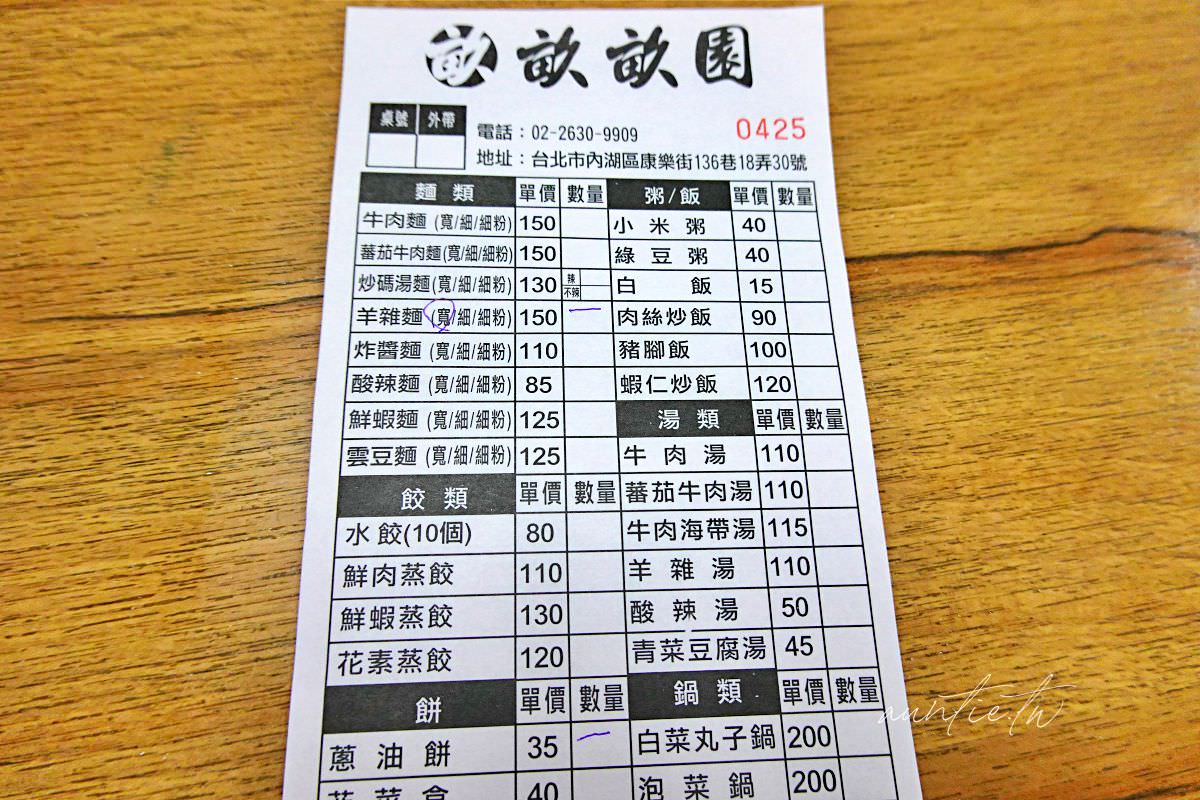 畝 畝畝園
桌號 外帶
電話：02-2630-9909
0425
地址：台北市內湖區康樂街136巷18弄30號
麵 類 單價 數量 粥/飯 單價 數量
牛肉麵 (寬/細/細粉) 150 小 米 粥 40
蕃茄牛肉麵(寬/細/細粉) 150 綠 豆 粥 40
炒碼湯麵(寬/細/細粉) 130 辣 不辣 白 飯 15
羊雜麵 (寬/細/細粉) 150 一 肉絲炒飯 90
炸醬麵 (寬/細/細粉) 110 豬腳飯 100
酸辣麵 (寬/細/細粉) 85 蝦仁炒飯 120
鮮蝦麵 (寬/細/細粉) 125 湯 類 單價 數量
雲豆麵 (寬/細/細粉) 125 牛 肉 湯 110
餃 類 單價 數量 蕃茄牛肉湯 110
水 餃(10個) 80 牛肉海帶湯 115
鮮肉蒸餃 110 羊 雜 湯 110
鮮蝦蒸餃 130 酸 辣 湯 50
花素蒸餃 120 青菜豆腐湯 45
餅 單價 數量 鍋 類 單價 數量
蔥 油 餅 35 一 白菜丸子鍋 200
40 泡 菜 鍋 200
auntie.tw